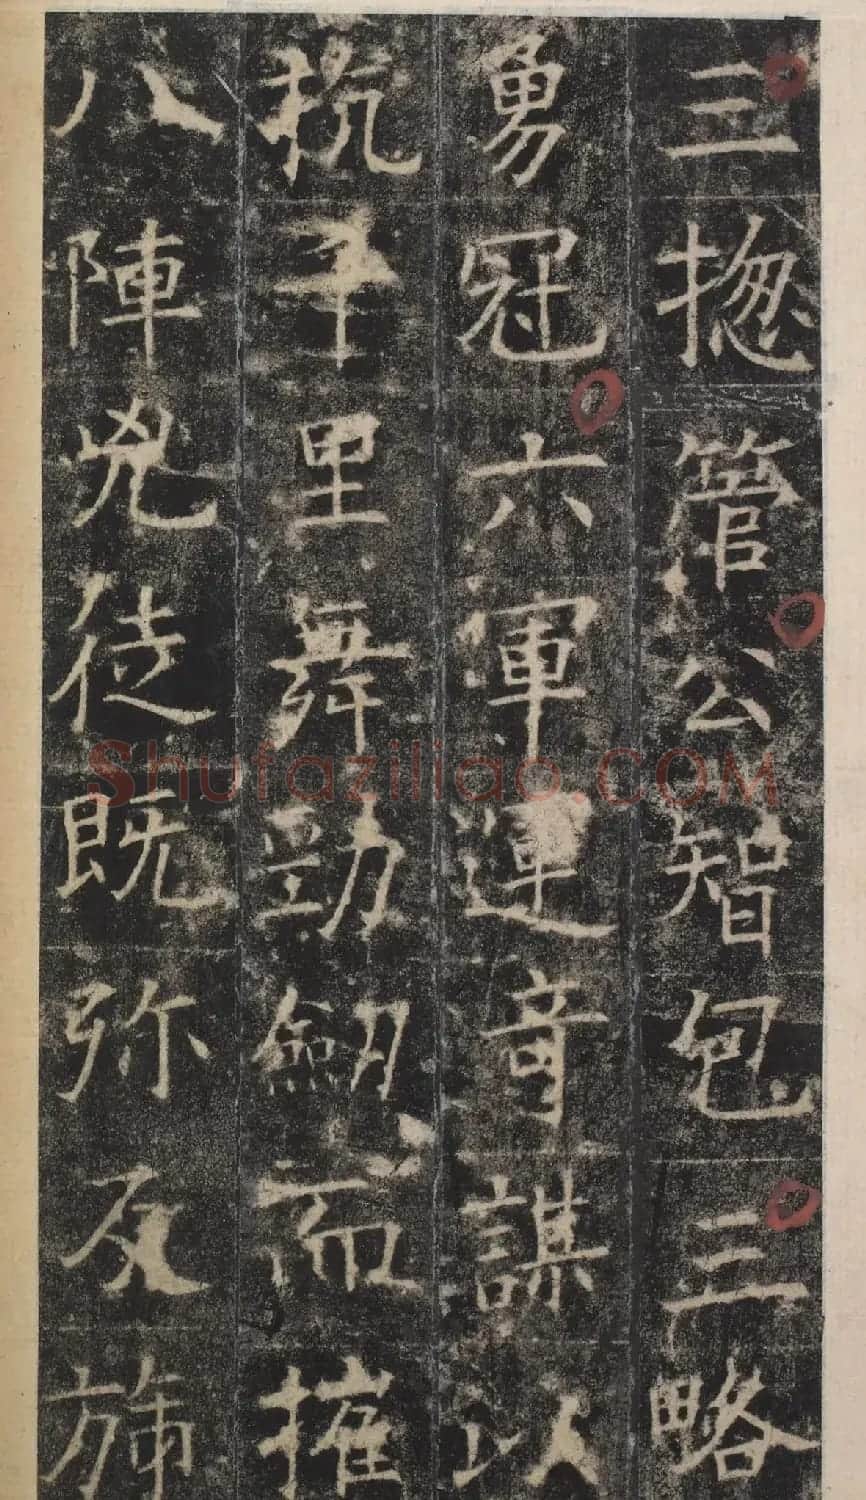 三揔管公智包三略
勇冠六軍運奇謀以
抗千里舞勁劒而摧
八陣兇徒既弥反旆
Shufaziliao.COM